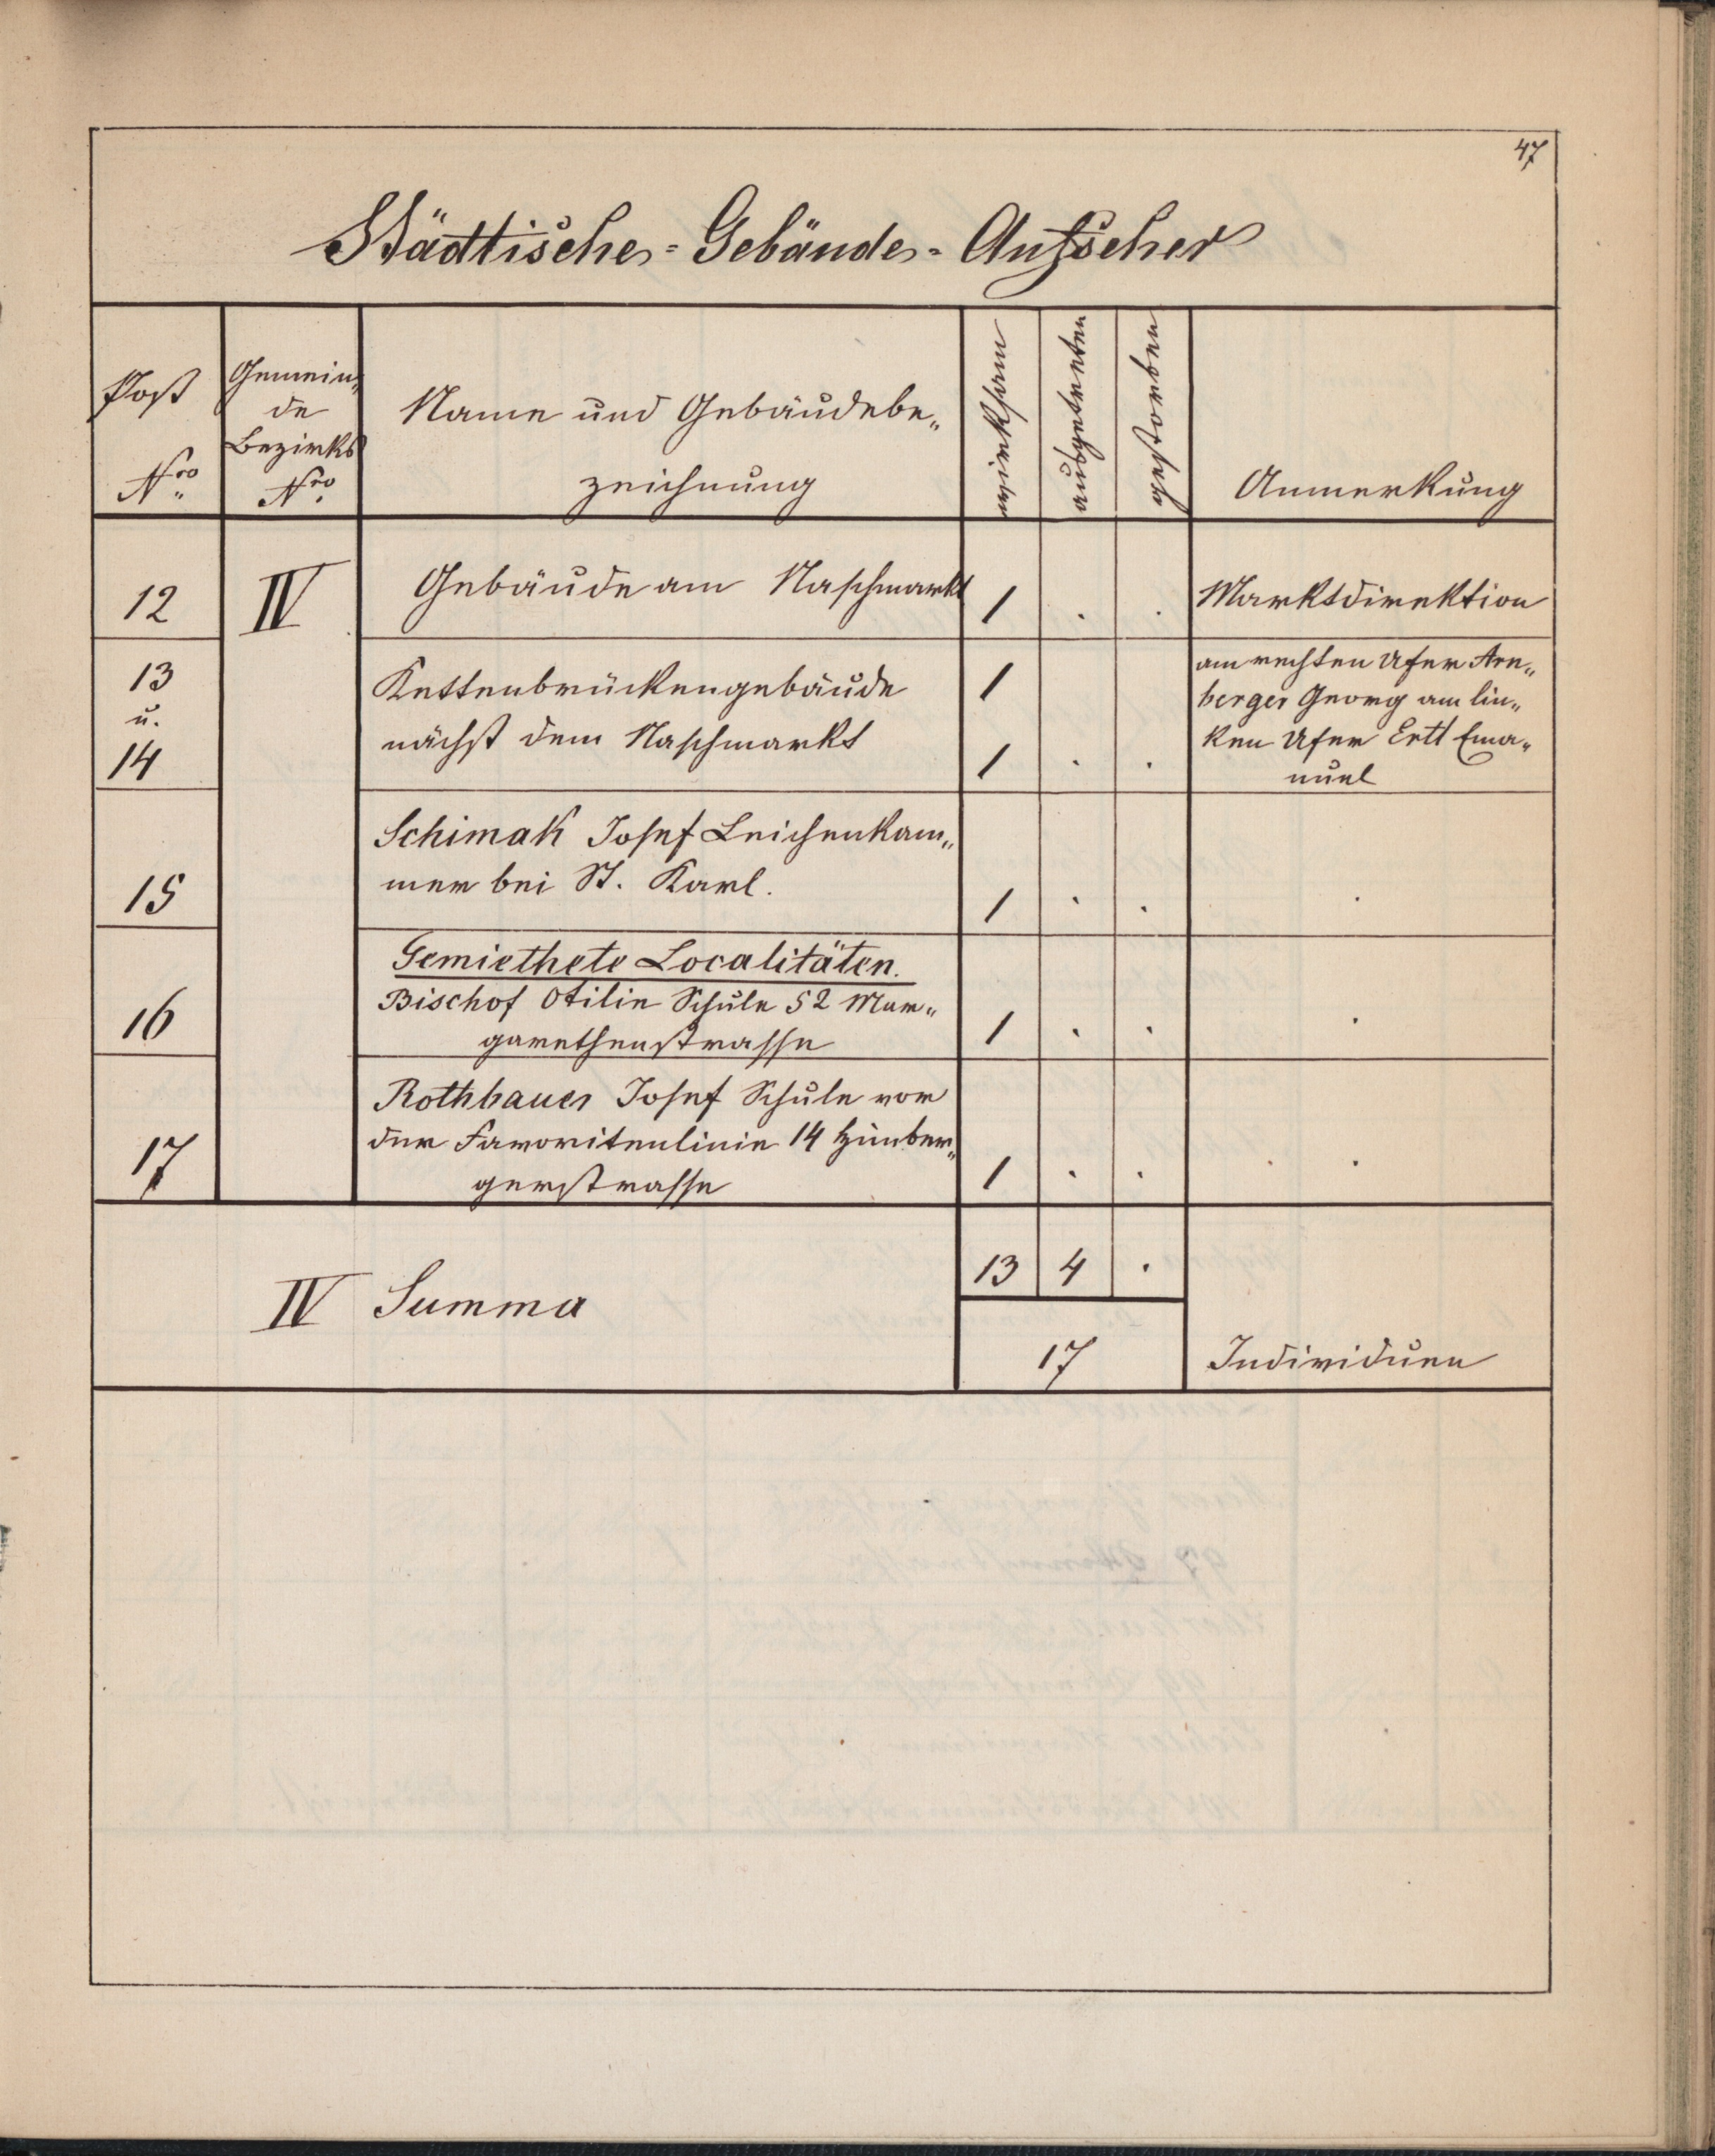 47
Städtische-Gebäude-Aufseher
Post
Nro
Gemein„
de
Bezirks
Nro
Name und Gebäudebe„
zeichnung
wirksam
ausgetreten
gestorben
Anmerkung
12 IV Gebäude am Naschmarkt 1 . . Marktdirektion
13
u.
14
Kettenbrückengebäude 1
nächst dem Naschmarkt 1 . .
am rechten Ufer Arn„
berger Georg am lin„
ken Ufer Ertl Ema„
nuel
Schimak Josef Leichenkam„
15 mer bei St. Karl. 1 . . .
Gemiethete Localitäten.
Bischof Otilie Schule 52 Mar„
16 garethenstrasse 1 . . .
Rothbauer Josef Schule vor
der Favoritenlinie 14 Himber„
17 gerstrasse 1 . . . .
13 4 .
IV Summa
17 Individuen